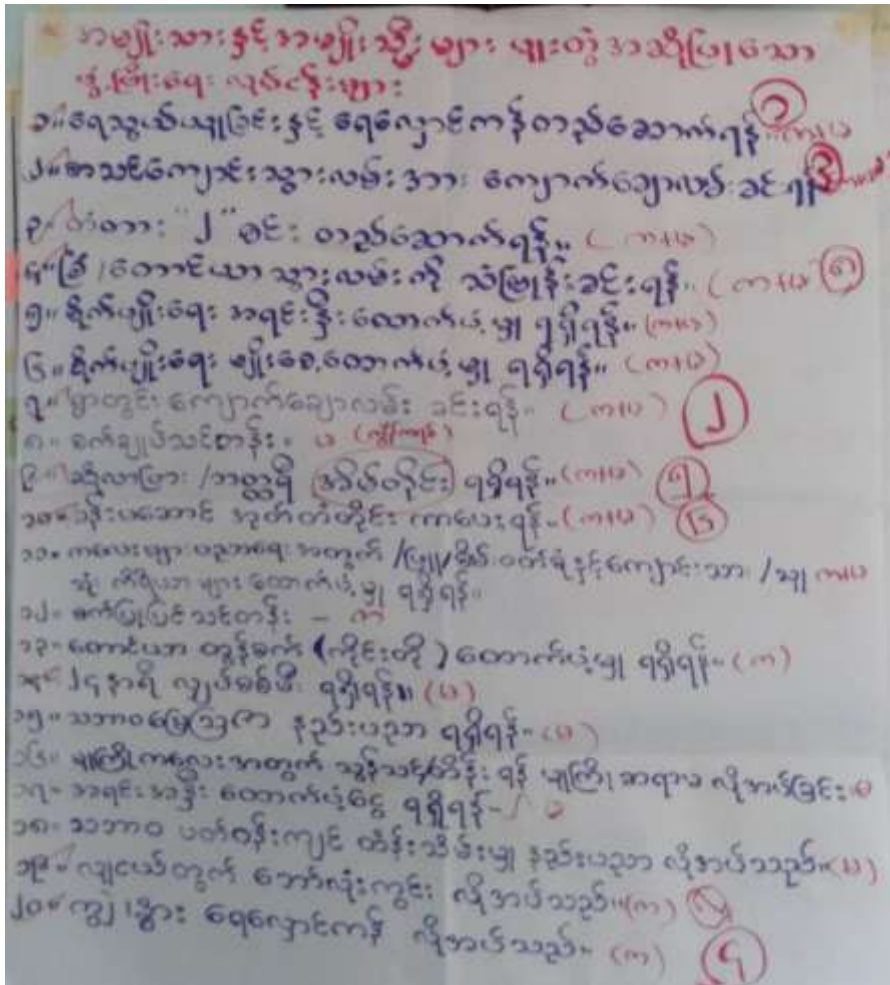 အမျိုးသားနှင့်အမျိုးသမီးများ ပူးတွဲအဆိုပြုသော
ဖွံ့ဖြိုးရေး လုပ်ငန်းများ
၁။ ရေသွယ်ယူခြင်းနှင့် ရေလှောင်ကန်တည်ဆောက်ရန်။ (က+မ ၁
၂။ စာသင်ကျောင်းသွားလမ်းအား ကျောက်ချောလမ်းခင်းရန် ၃
၃။ တံတား "၂" စင်း တည်ဆောက်ရန်။ (က+မ)
၄။ ခြံ/တောင်ယာ သွားလမ်းကို သံဖြူန်းခင်းရန်။ (က+မ ၈
၅။ စိုက်ပျိုးရေး အရင်းနှီးထောက်ပံ့မှု ရရှိရန်။ (က+မ)
၆။ စိုက်ပျိုးရေး မျိုးစေ့ထောက်ပံ့မှု ရရှိရန်။ (က+မ)
၇။ ရွာတွင်းကျောက်ချောလမ်း ခင်းရန်။ (က+မ) ၂
၈။ စက်ချုပ်သင်တန်း။ မ
၉။ ဆိုလာပြား/ဘတ္ထရီ အိမ်တိုင်း ရရှိရန်။ (က+မ) ၅
၁၀။ ခန်းမဆောင် အုတ်တံတိုင်း ကာပေးရန်။ (က+မ) ၆
၁၁။ ကလေးများပညာရေးအတွက် /မြူ/ မိမ်းဝတ်စုံနှင့်ကျောင်းသား/သူ က+မ
သုံး ကိရိယာများထောက်ပံ့မှု ရရှိရန်။
၁၂။ စက်ပြုပြင်သင်တန်း - က
၁၃။ တောင်ယာ ထွန်စက် (လိုင်းတို) ထောက်ပံ့မှု ရရှိရန်။ (က)
၁၄။ ၂၄ နာရီ လျှပ်စစ်မီး ရရှိရန်။ (မ)
၁၅။ သဘာဝမြေဩဇာ နည်းပညာ ရရှိရန်။ (မ)
၁၆။ မူကြိုကလေးအတွက် သွန်သင်/ထိန်း ရန် မူကြိုဆရာမ လိုအပ်ခြင်း မ
၁၇။ အရင်းအနှီး ထောက်ပံ့ငွေ ရရှိရန် - မ
၁၈။ သဘာဝ ပတ်ဝန်းကျင် ထိန်းသိမ်းမှု နည်းပညာ လိုအပ်သည်။ (မ)
၁၉။ လူငယ်တွက် ဘော်လုံးကွင်း လိုအပ်သည်။ (က)
၂၀။ ကျွဲ၊ နွား ရေလှောင်ကန် လိုအပ်သည်။ (က) ၄